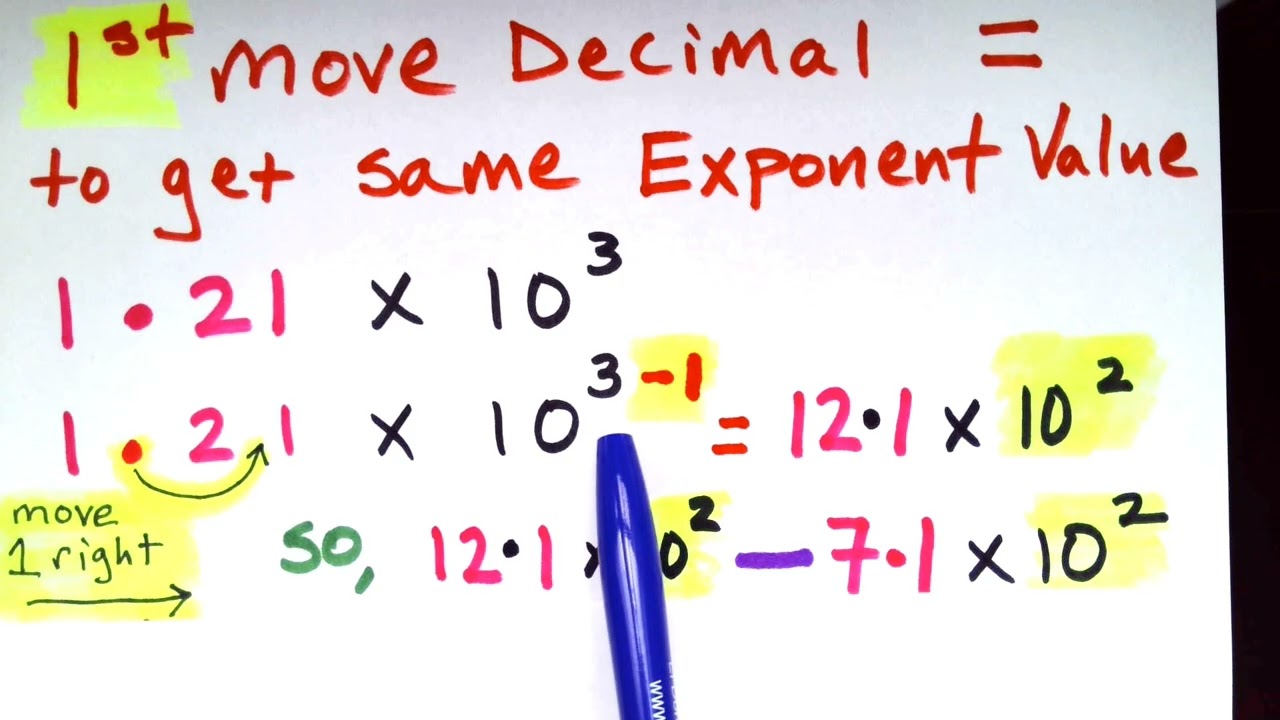 1st move Decimal =
to get same Exponent Value
1.21 x 10³
1.21 x 10³⁻¹ = 12.1 x 10²
move
1 right
so, 12.1 x 10² — 7.1 x 10²
www